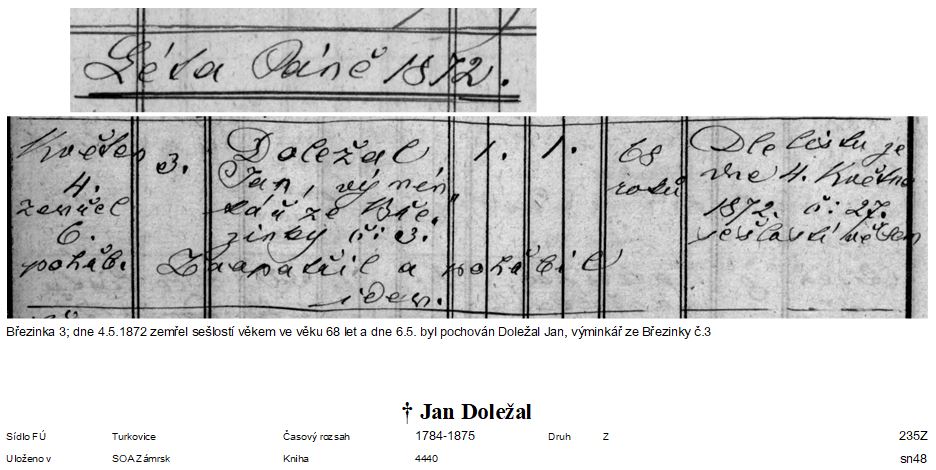 Léta Páně 1872.
Květen 3. Doležal 1. 1. 68 Dle listu je
4. Jan, výmin„ roků dne 4. Května
zemřel kář ze Bře„ 1872. č: 27.
6. zinky č: 3. sešlostí věkem
pohřb. Zaopatřil a pohřbil
iden.
Březinka 3; dne 4.5.1872 zemřel sešlostí věkem ve věku 68 let a dne 6.5. byl pochován Doležal Jan, výminkář ze Březinky č.3
† Jan Doležal
Sídlo FÚ Turkovice Časový rozsah 1784-1875 Druh Z 235Z
Uloženo v SOA Zámrsk Kniha 4440 sn48